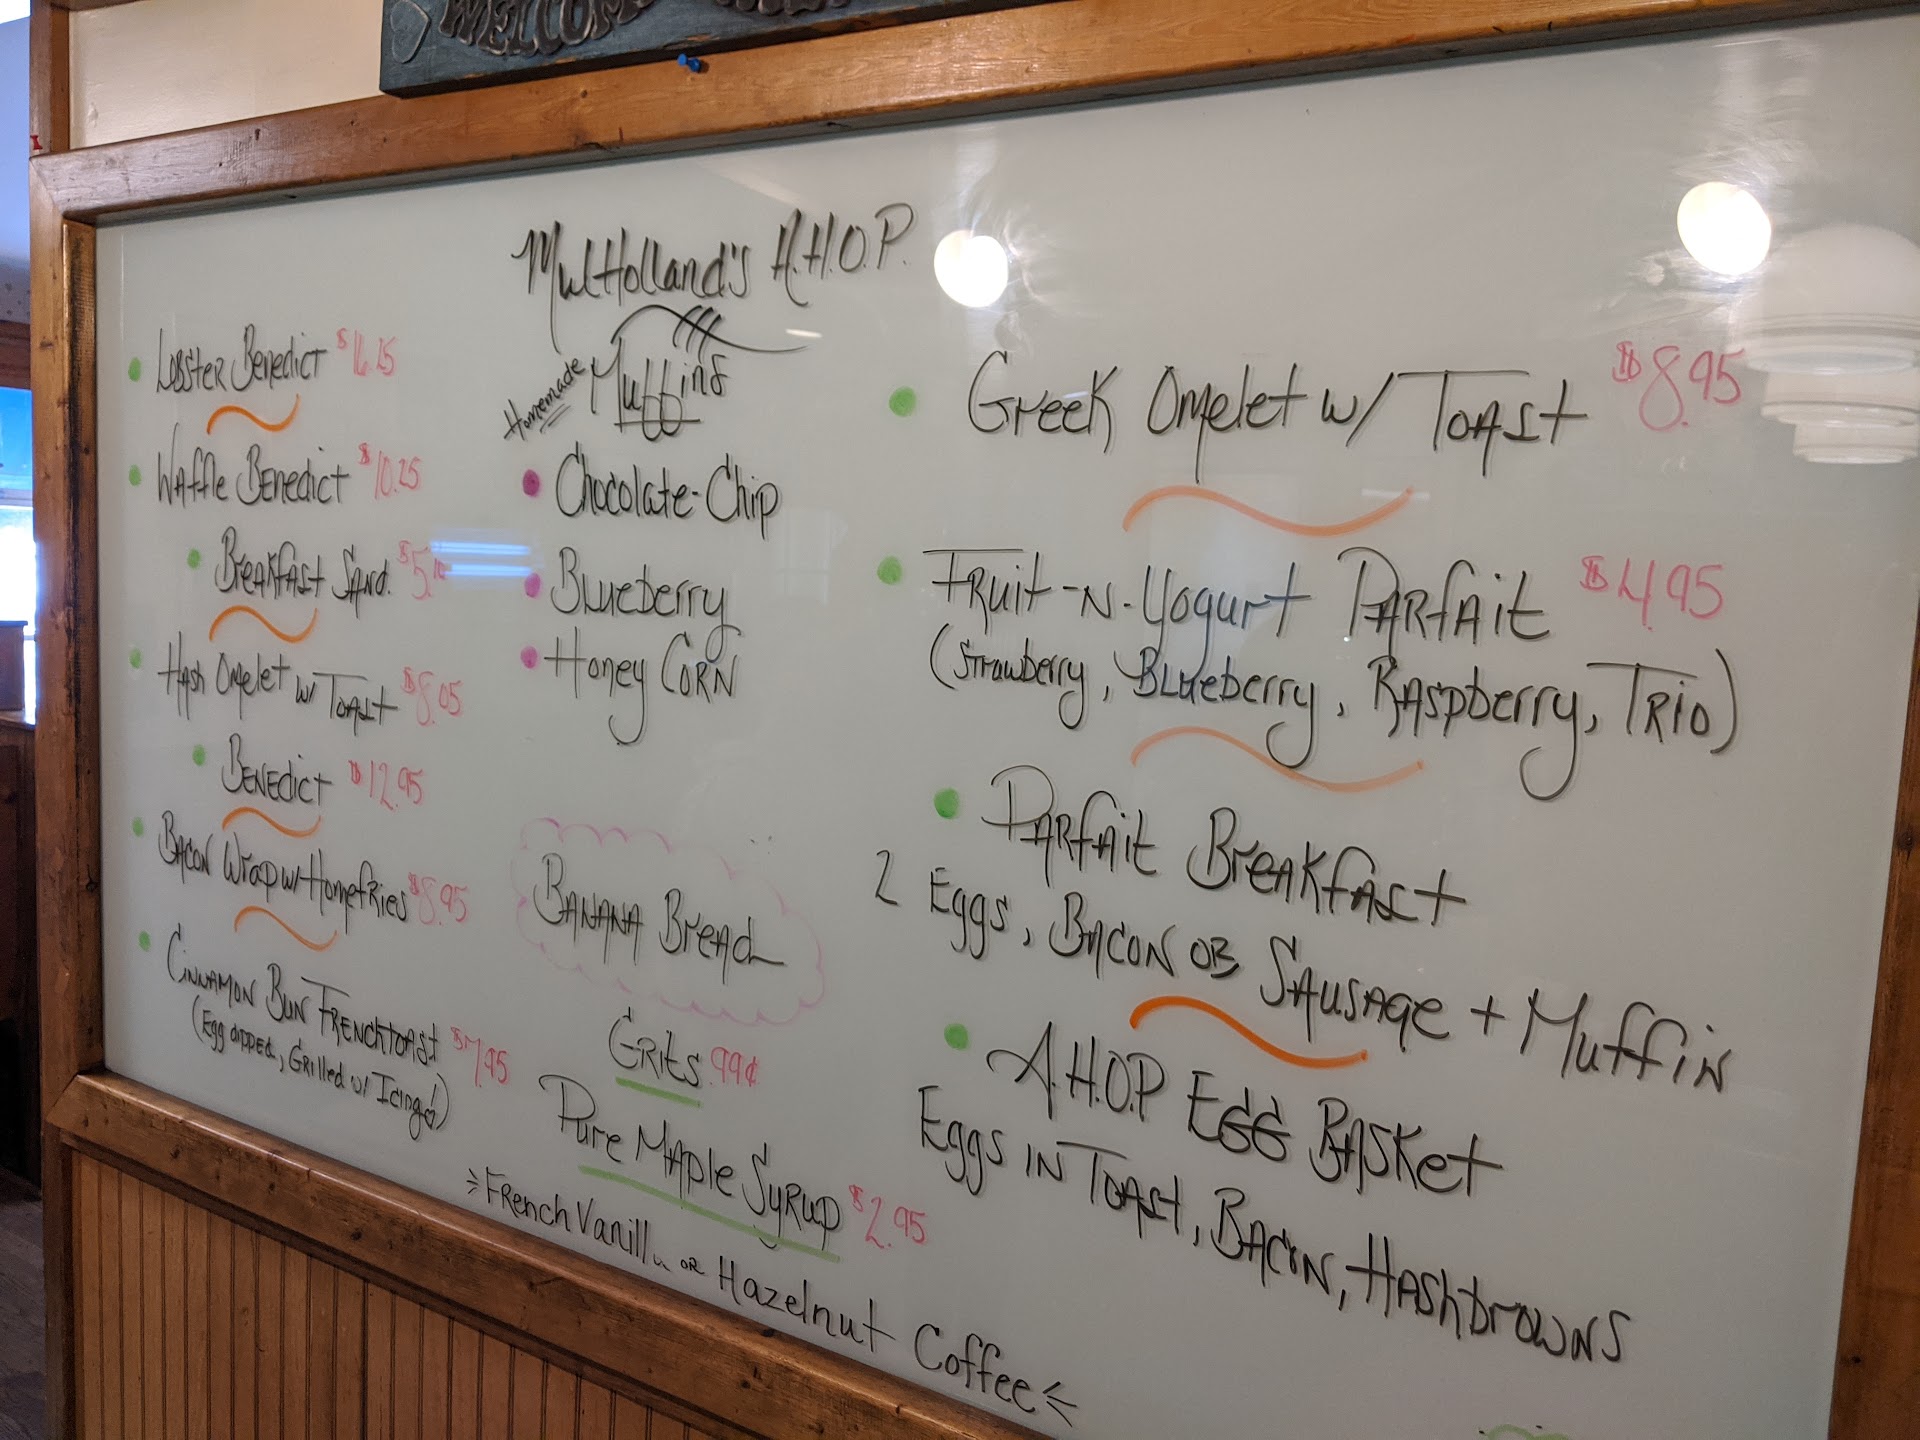 WELCOME
MulHolland's A.H.O.P.
Lobster Benedict $16.25
Waffle Benedict $10.25
Breakfast Sand.
Hash Omelet w/ Toast $8.05
Benedict $12.95
Bacon Wrap w/ Homefries $8.95
Cinnamon Bun Frenchtoast $7.95
(Egg dipped, Grilled w/ Icing)
Homemade Muffins
Chocolate-Chip
Blueberry
Honey Corn
Banana Bread
Grits .99¢
Pure Maple Syrup $2.95
French Vanilla or Hazelnut Coffee
Greek Omelet w/ Toast $8.95
Fruit-N-Yogurt Parfait $4.95
(Strawberry, Blueberry, Raspberry, Trio)
Parfait Breakfast
2 Eggs, Bacon or Sausage + Muffin
A.H.O.P Egg Basket
Eggs in Toast, Bacon, Hashbrowns